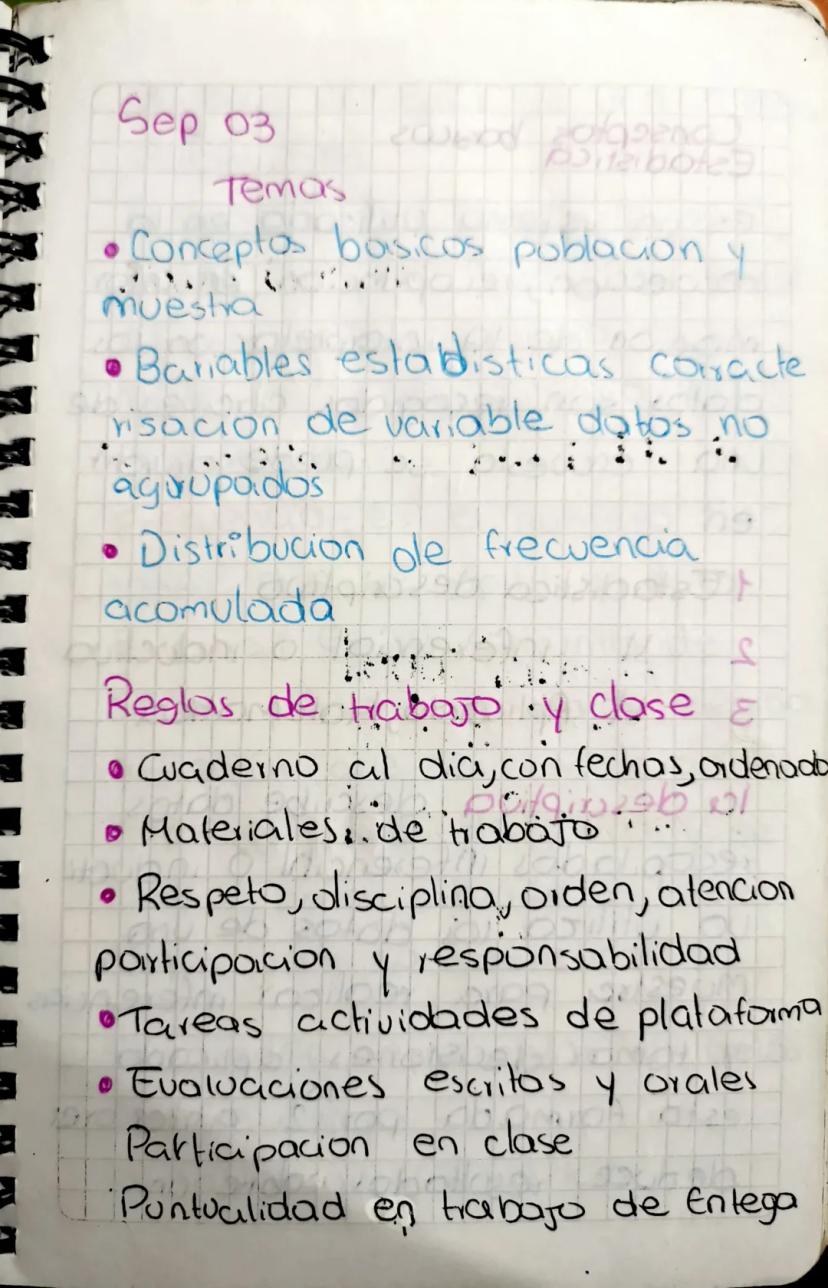 Sep 03
Temas
• Conceptos basicos poblacion y
muestra
• Bariables estabisticas caracte
risacion de variable datos no
agurupados
• Distribucion de frecuencia
acomulada
Reglas de trabajo y clase
• Cuaderno al dia, con fechas, ordenado
• Materiales de trabajo
• Respeto, disciplina, orden, atencion
participacion y responsabilidad
• Tareas actividades de plataforma
• Evaluaciones escritos y orales
Participacion en clase
Puntualidad en trabajo de Entega